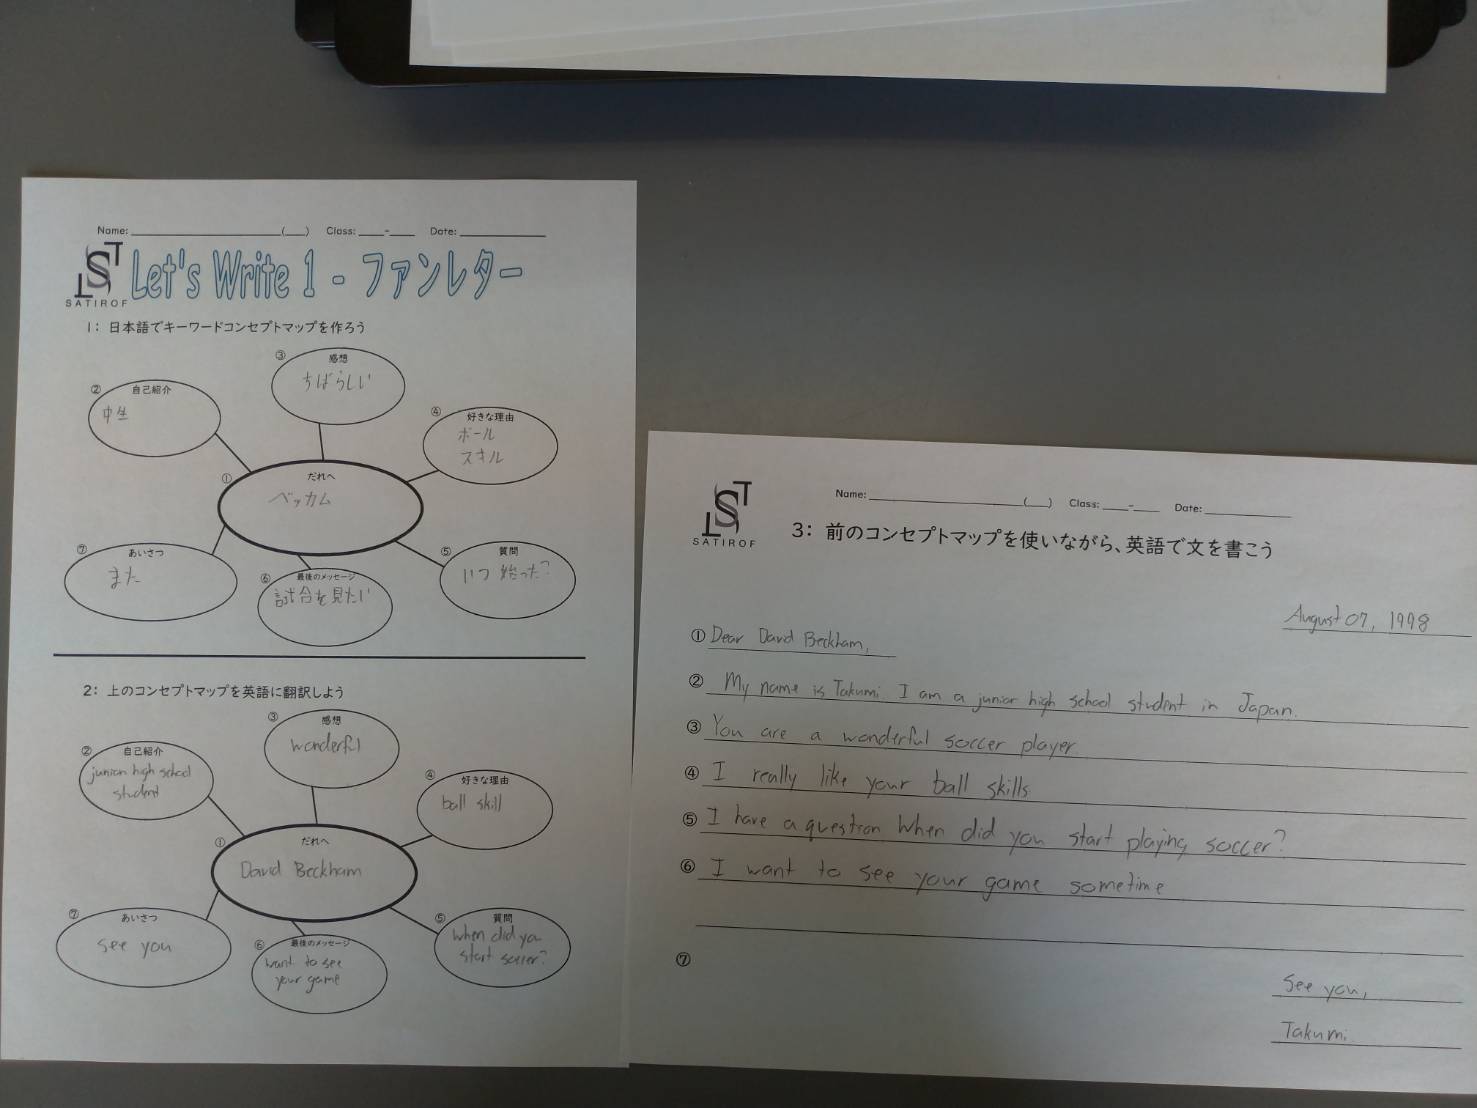 Name: ____ (__) Class: __-__ Date: ____
LST
SATIROF
Let's Write 1 - ファンレター
1: 日本語でキーワードコンセプトマップを作ろう
① だれへ
ベッカム
② 自己紹介
中生
③ 感想
ちばらしい
④ 好きな理由
ボール
スキル
⑤ 質問
いつ始った?
⑥ 最後のメッセージ
試合を見たい
⑦ あいさつ
また
2: 上のコンセプトマップを英語に翻訳しよう
① だれへ
David Beckham
② 自己紹介
junior high school
student
③ 感想
wonderful
④ 好きな理由
ball skill
⑤ 質問
when did you
start soccer?
⑥ 最後のメッセージ
want to see
your game
⑦ あいさつ
see you
Name: ____ (__) Class: __-__ Date: ____
LST
SATIROF
3: 前のコンセプトマップを使いながら、英語で文を書こう
August 07, 1998
① Dear David Beckham,
② My name is Takumi I am a junior high school student in Japan.
③ You are a wonderful soccer player
④ I really like your ball skills
⑤ I have a question When did you start playing soccer?
⑥ I want to see your game sometime
⑦
See you,
Takumi